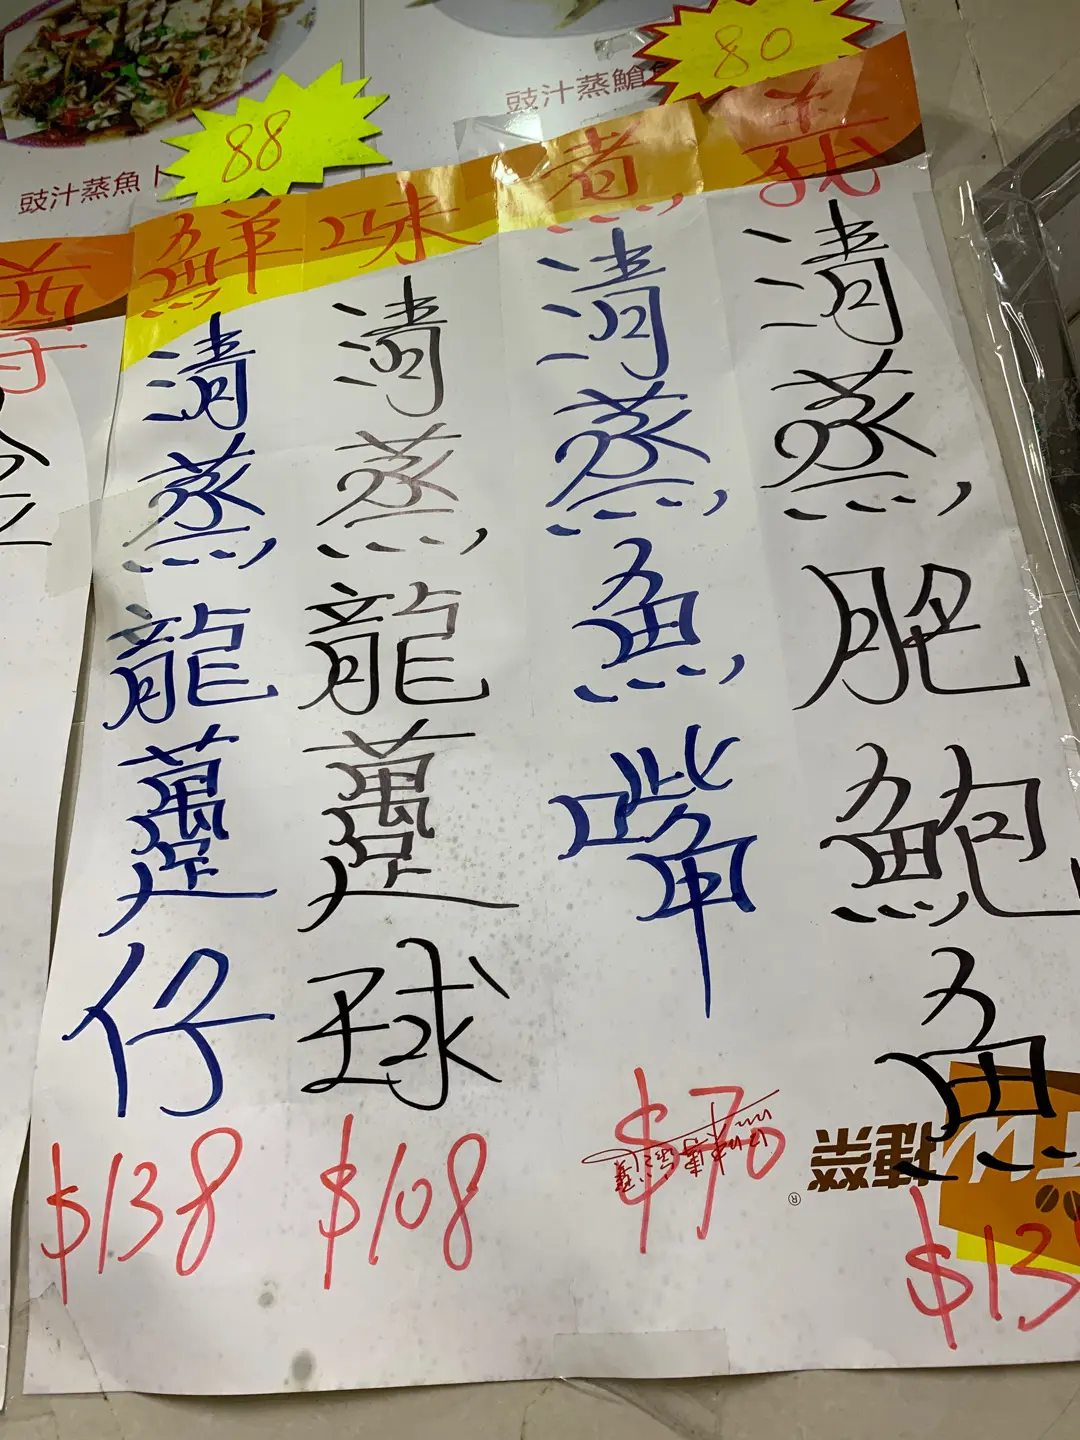 豉汁蒸
80
豉汁蒸魚卜
88
鮮味煮
清蒸龍躉仔
$138
清蒸龍躉球
$108
清蒸魚嘴
$70
清蒸肥鮑魚
$13
捷榮
®